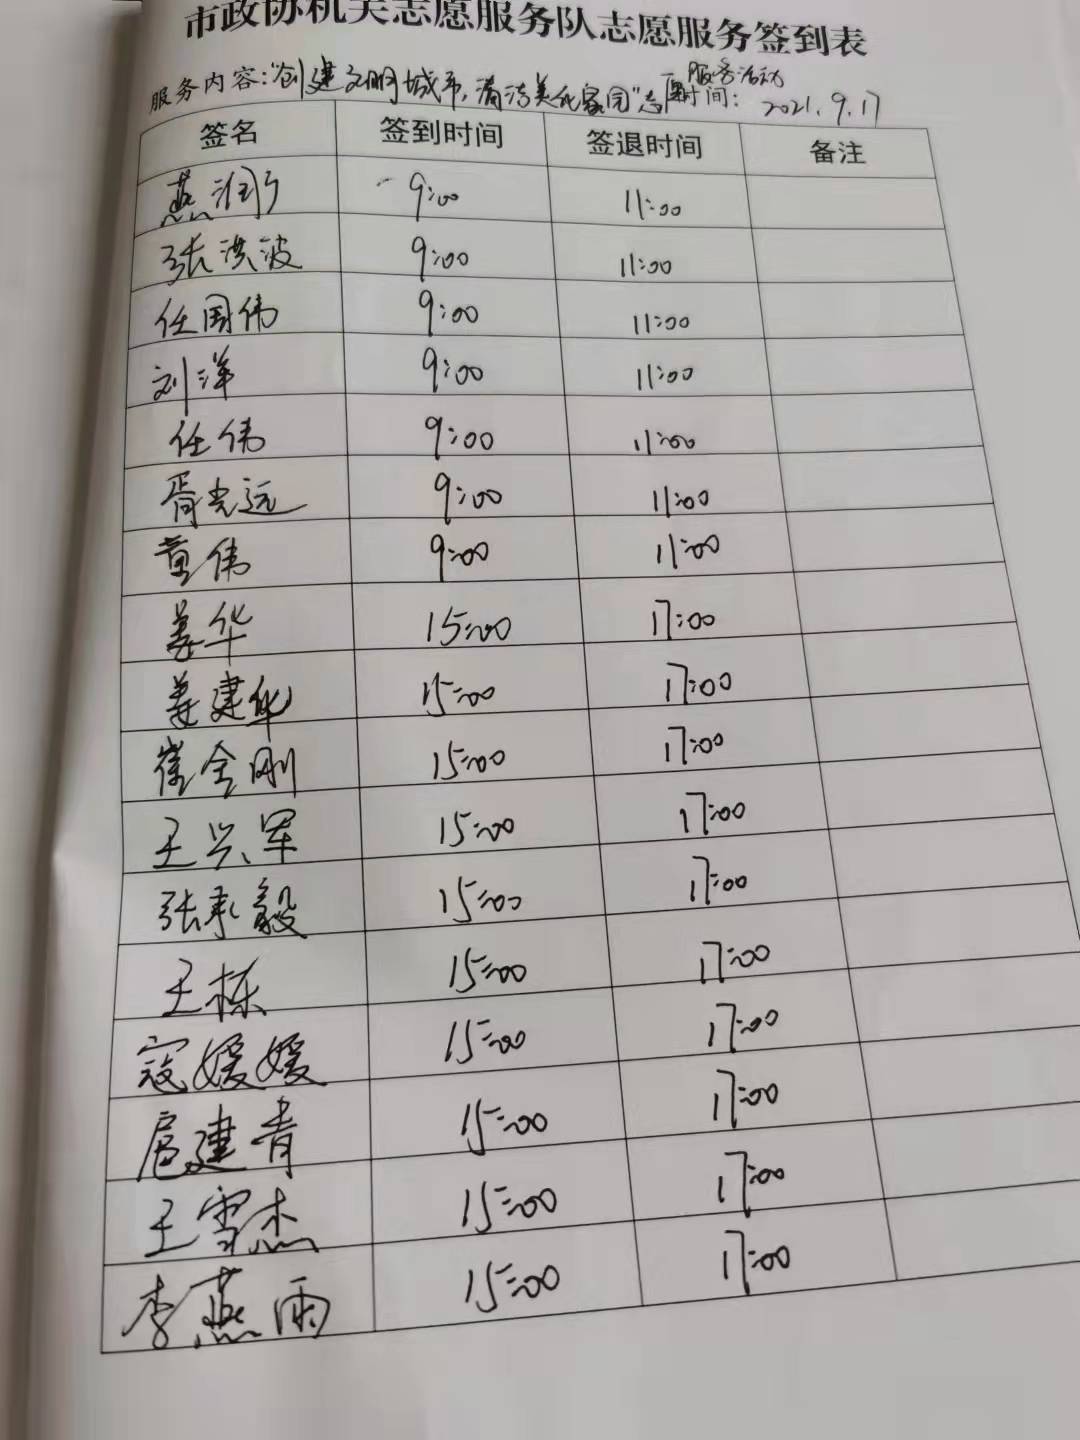 市政协机关志愿服务队志愿服务签到表
服务内容:"创建文明城市,清洁美化家园"志愿服务活动 时间: 2021.9.17
签名 签到时间 签退时间 备注
燕润 9:00 11:00
张洪波 9:00 11:00
任国伟 9:00 11:00
刘洋 9:00 11:00
任伟 9:00 11:00
胥光远 9:00 11:00
童伟 9:00 11:00
姜华 15:00 17:00
姜建华 15:00 17:00
崔金刚 15:00 17:00
王兴军 15:00 17:00
张承毅 15:00 17:00
王栋 15:00 17:00
寇媛媛 15:00 17:00
扈建青 15:00 17:00
王雪杰 15:00 17:00
李燕雨 15:00 17:00